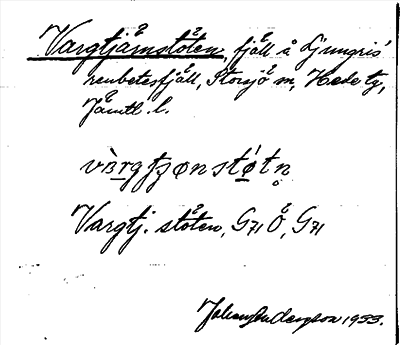 Vargtjärnstöten, fjäll å Ljungris'
renbetesfjäll, Storsjö sn, Hede tg,
Jämtl. l.
Vargtj. stöten, G71 Ö, G71
1933.